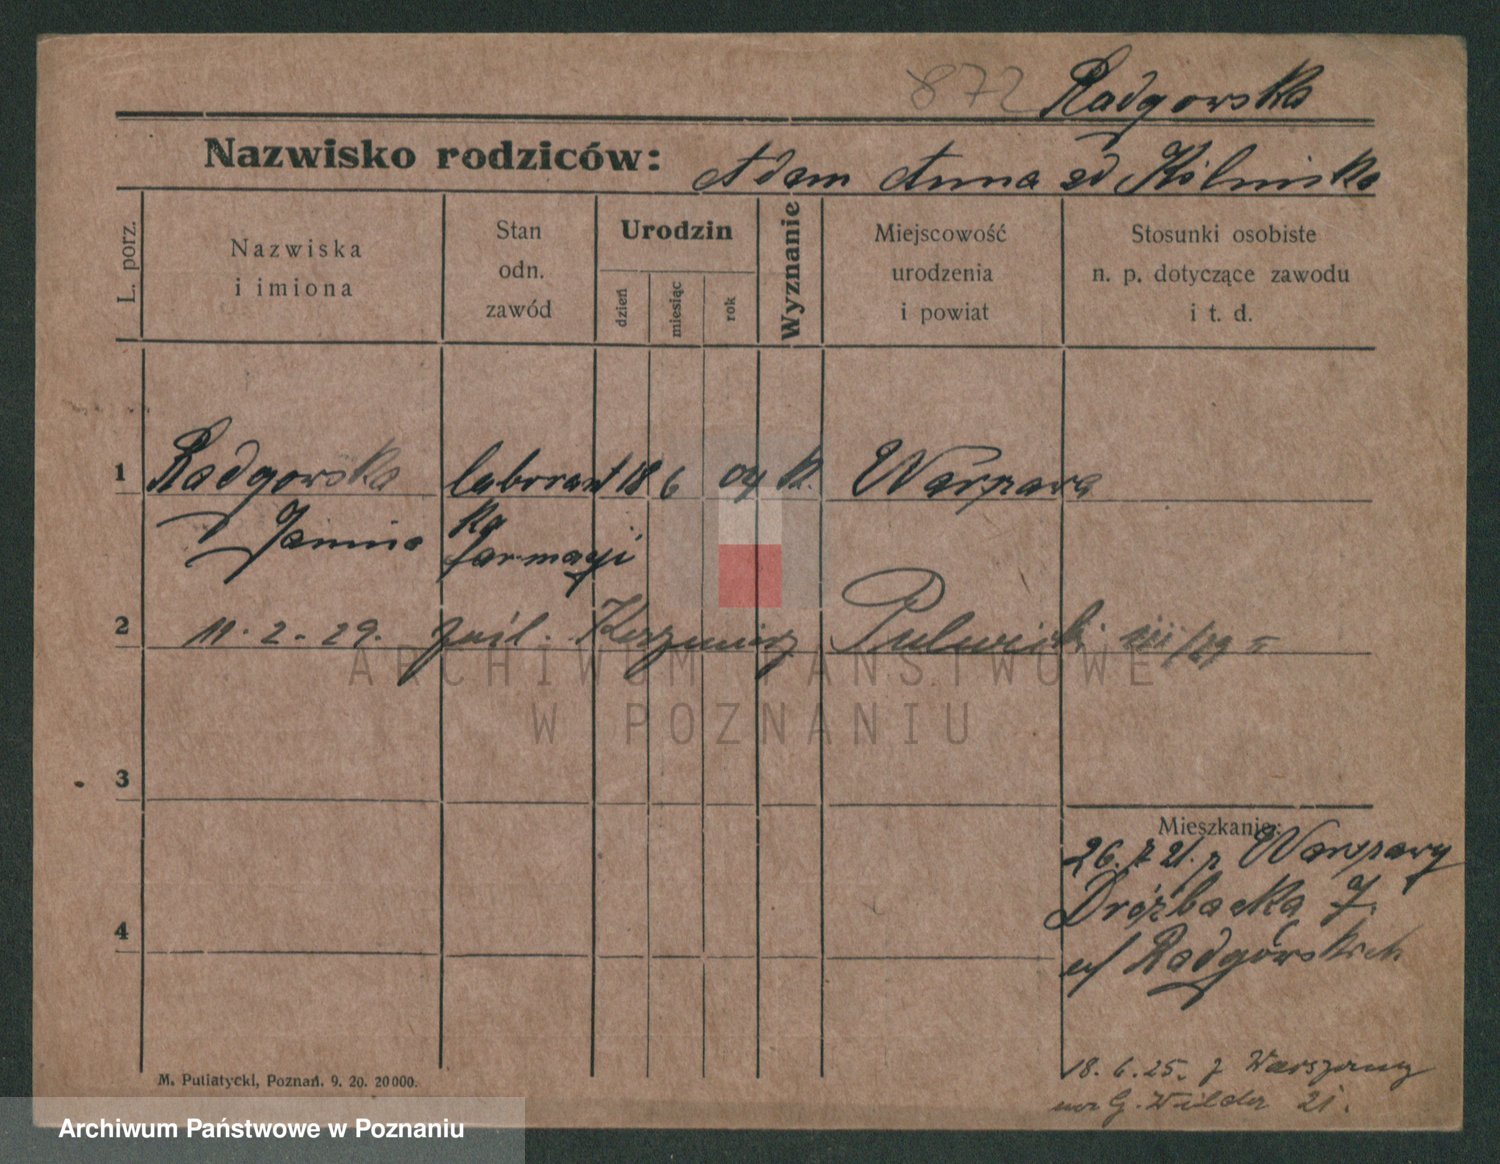 872 Radgorska
Nazwisko rodziców: Adam Anna zd Kilińska
L. porz.
Nazwiska
i imiona
Stan
odn.
zawód
Urodzin
dzień
miesiąc
rok
Wyznanie
Miejscowość
urodzenia
i powiat
Stosunki osobiste
n. p. dotyczące zawodu
i t. d.
1 Radgorska laborant 18 6 04 k. Warszawa
Janina ka
farmacji
2 11. 2. 29. pośl. Kazimierz
ARCHIWUM PAŃSTWOWE
W POZNANIU
3
Mieszkanie:
26. 7 21. z Warszawy
Drużbacka 7.
Radgórskich
4
18. 6. 25. z Warszawy
G. Wilda 21.
M. Putiatycki, Poznań. 9. 20. 20000.
Archiwum Państwowe w Poznaniu